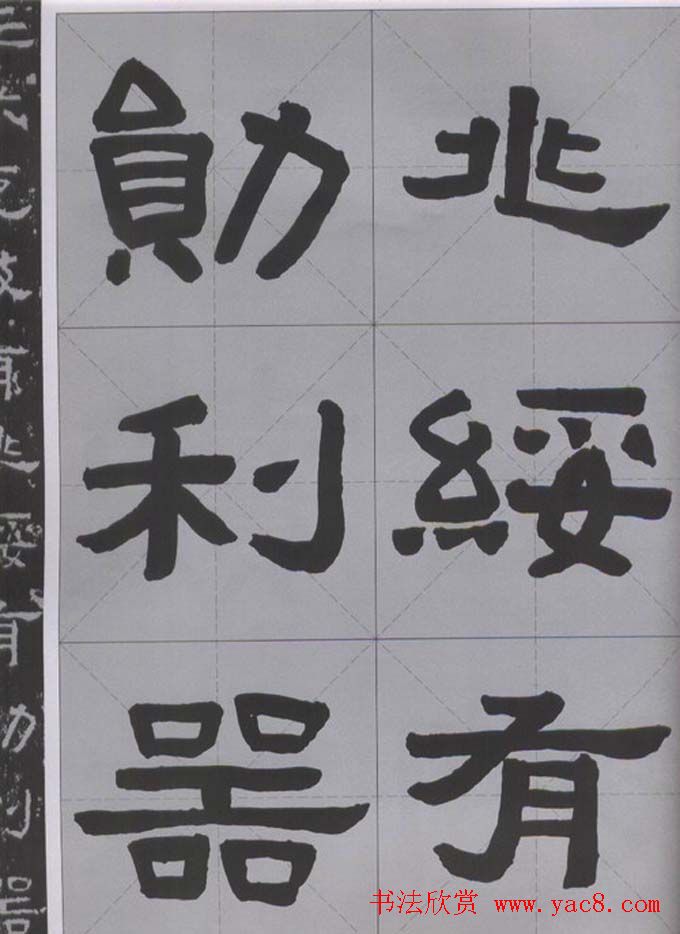 兆綏有
勛利器
书法欣赏 www.yac8.com